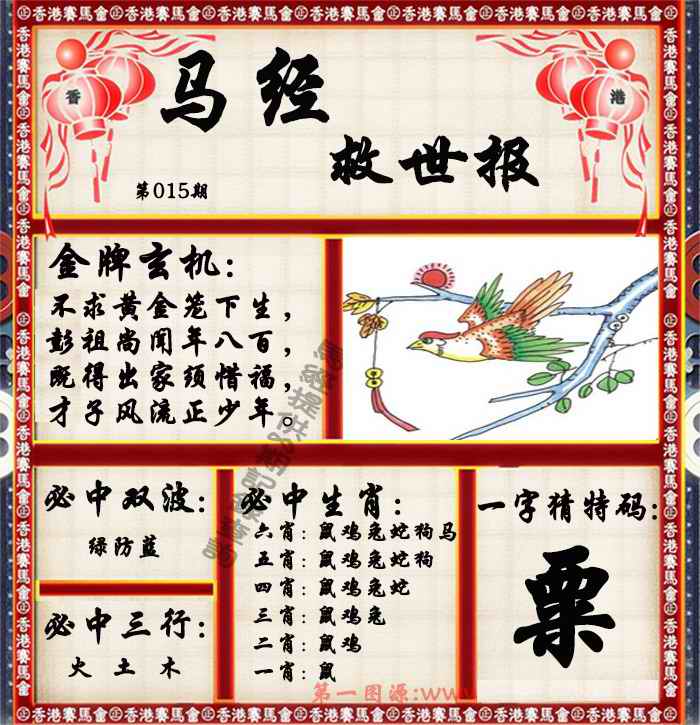 香港賽馬會㊣香港賽馬會㊣香港賽馬會㊣香港賽馬會㊣香港賽馬會㊣香港賽馬會
香
港
马经
救世报
第015期
金牌玄机：
不求黄金笼下生，
彭祖尚闻年八百，
既得出家须惜福，
才子风流正少年。
必中双波：
绿防蓝
必中三行：
火 土 木
必中生肖：
六肖：鼠鸡兔蛇狗马
五肖：鼠鸡兔蛇狗
四肖：鼠鸡兔蛇
三肖：鼠鸡兔
二肖：鼠鸡
一肖：鼠
一字猜特码：
粟
第一图源:www